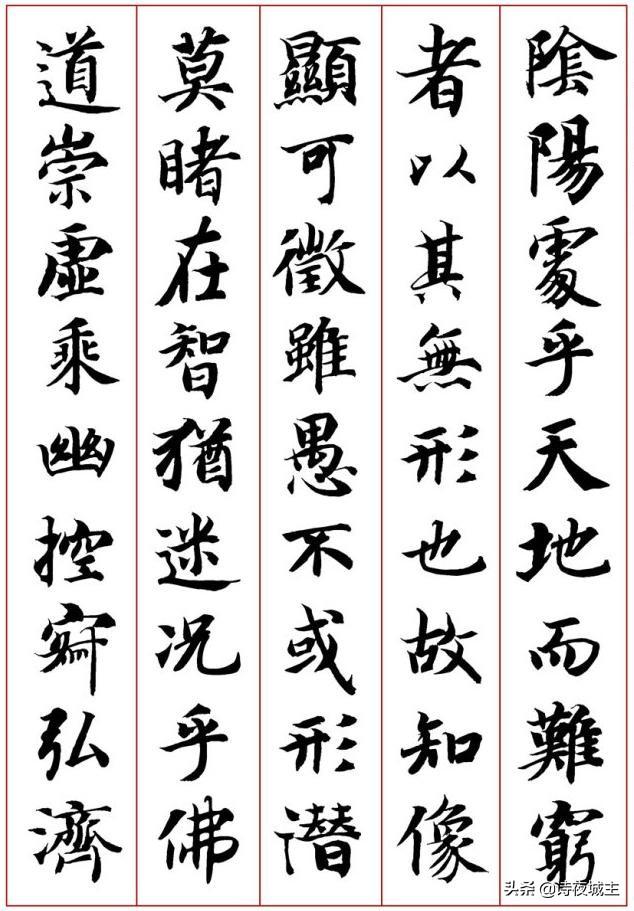 陰陽處乎天地而難窮
者以其無形也故知像
顯可徵雖愚不或形潛
莫睹在智猶迷况乎佛
道崇虛乘幽控寂弘濟
头条 @诗夜城主